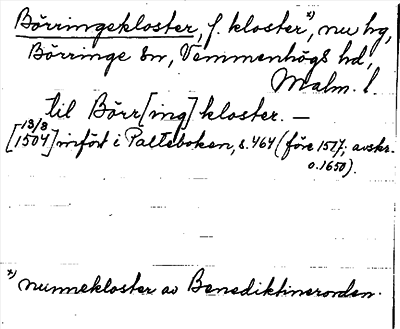 Börringekloster, f. kloster *), nu hg,
Börringe sn, Vemmenhögs hd,
Malm. l
til Börr[ing]kloster. —
[13/8 1504] införd i Palteboken, s. 464 (före 1517; avskr.
o. 1650).
*) nunnekloster av Benediktinerorden.